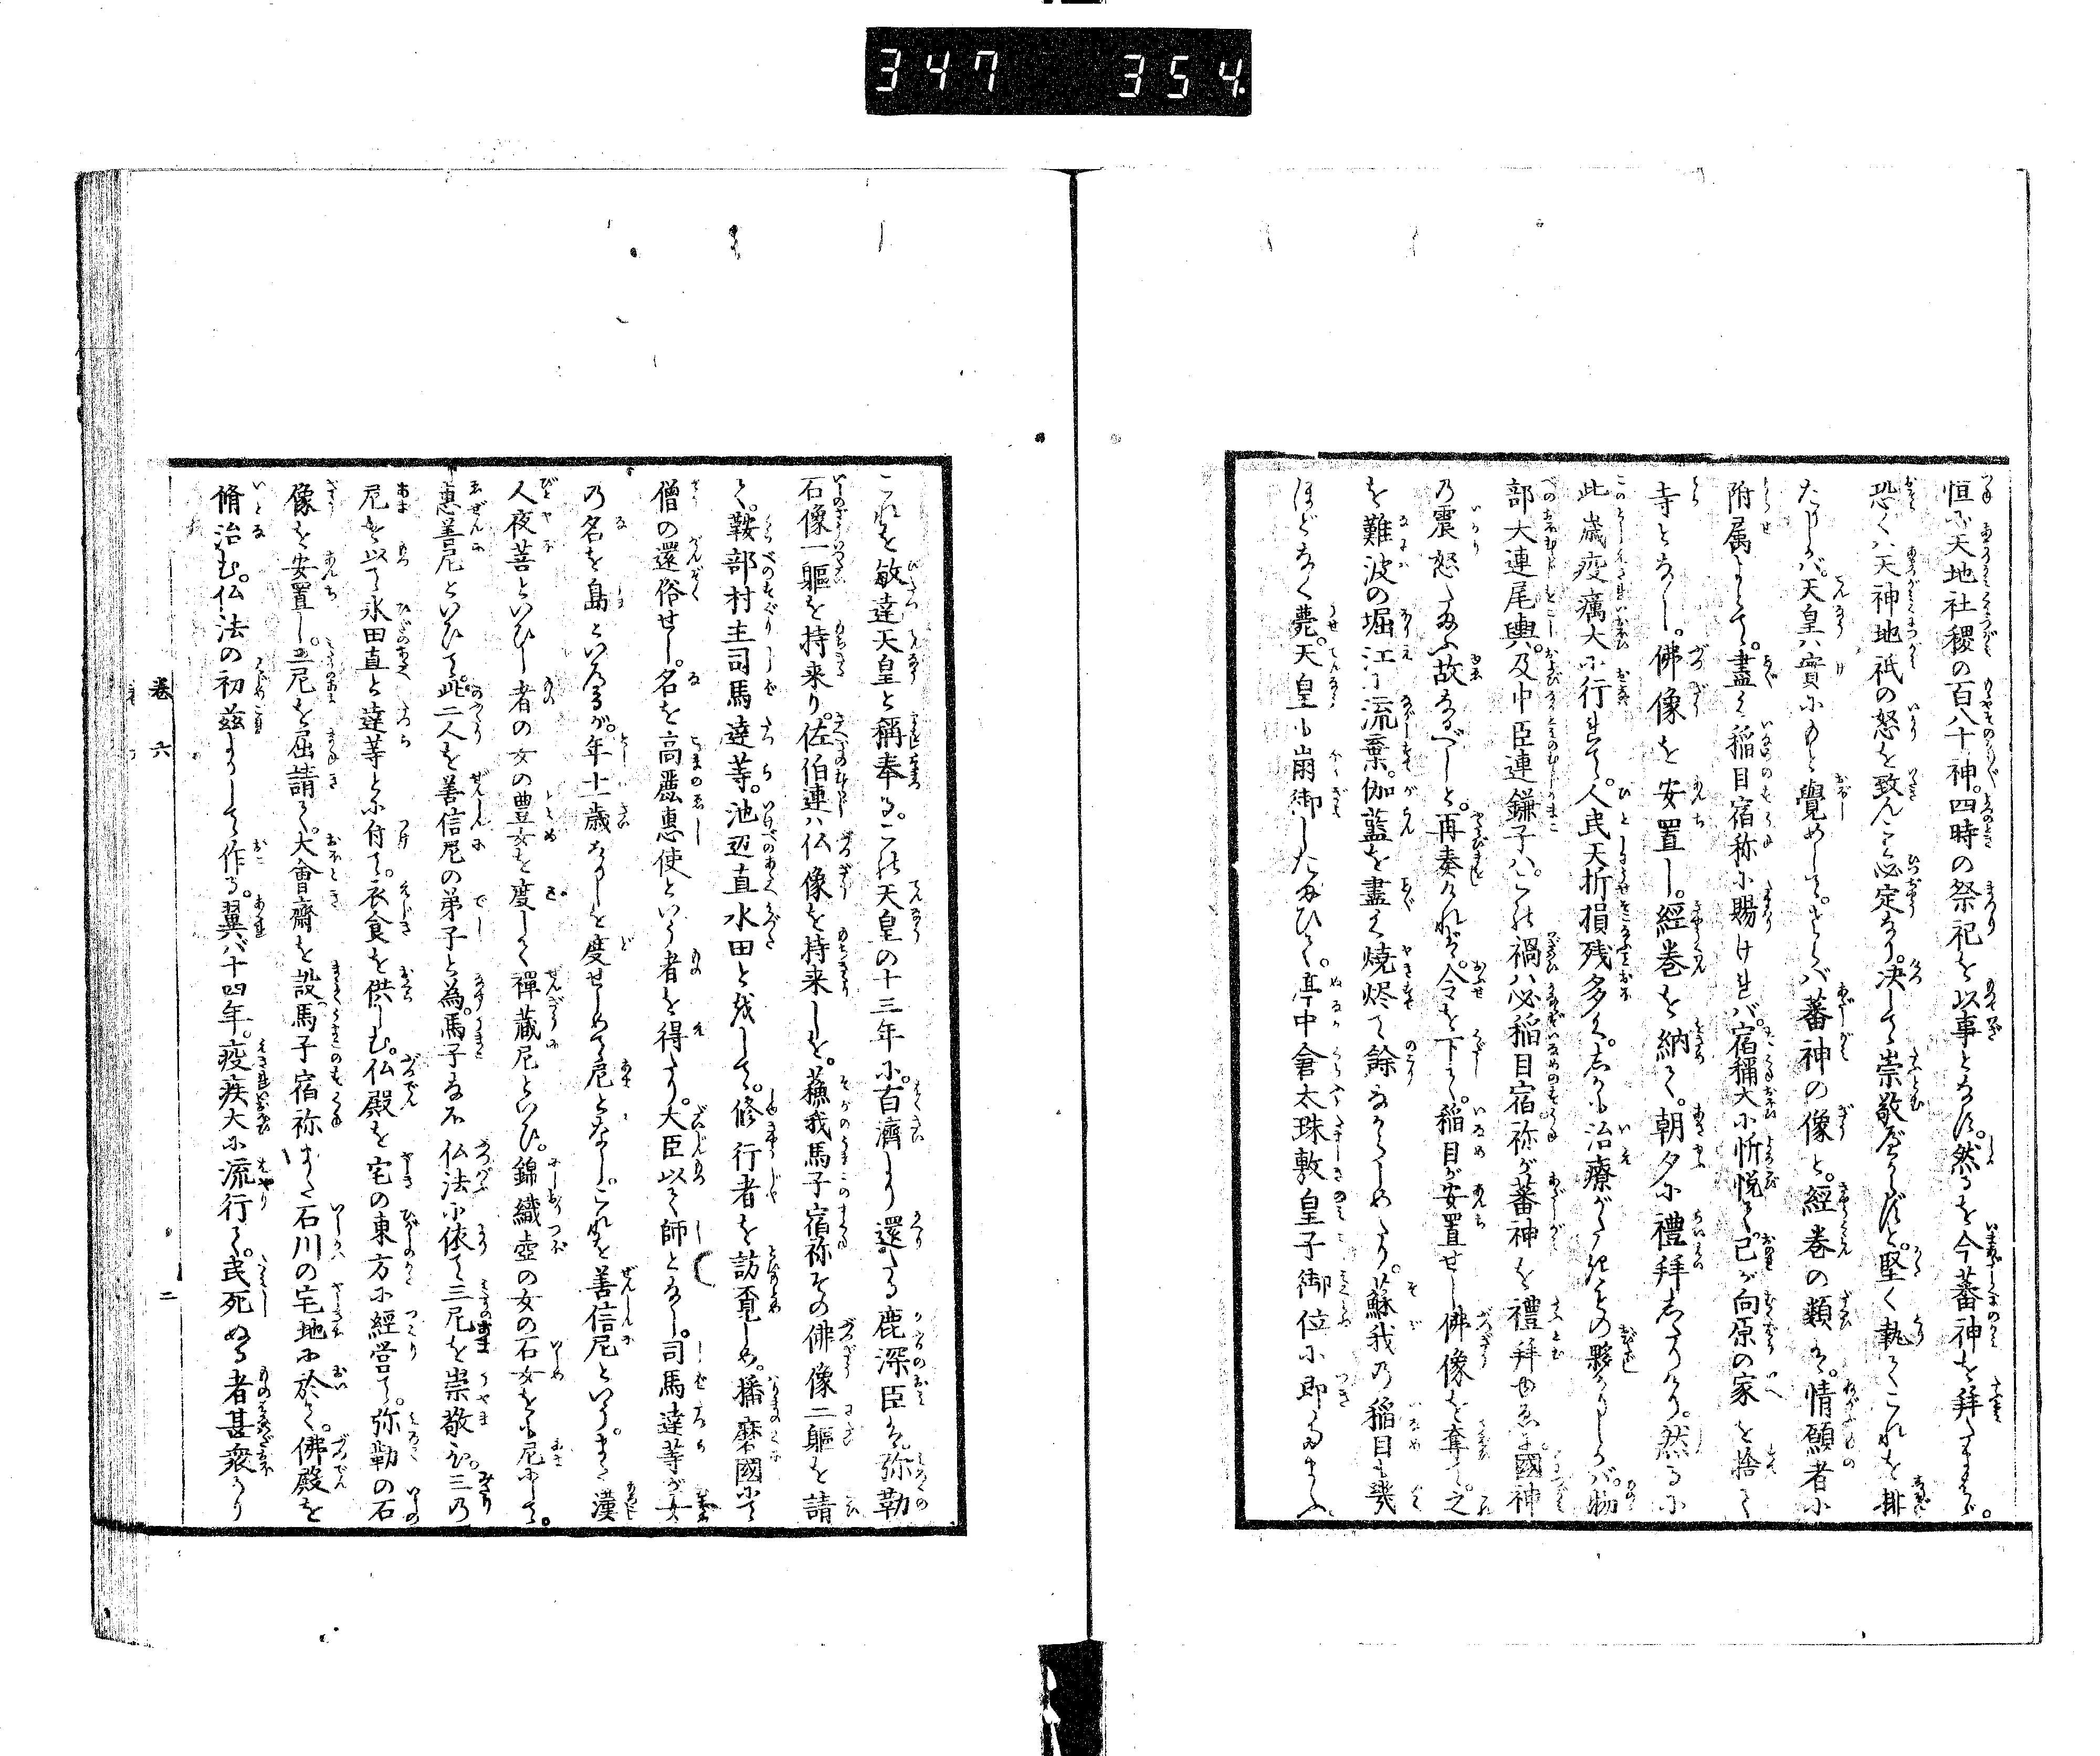 347 354
恒に天地社稷の百八十神。四時の祭祀を以事となす。然るを今蕃神を拝たまはゞ。
恐くハ天神地祇の怒を致んこと必定なり。决して崇敬べからずと。堅く執てこれを排
たりしかバ。天皇ハ實にもと覺めして。さらバ蕃神の像と。經巻の類は。情願者に
附属よとて。盡く稲目宿祢に賜けれバ。宿祢大に忻悦て。己が向原の家を捨て
寺となし。佛像を安置し。經巻を納て。朝夕に禮拜したりけり。然るに
此歳疫癘大に行れて。人民夭折損残多く。しかも治療がたきもの夥かりしかバ。物
部大連尾輿。及中臣連鎌子ハ。これ禍ハ必稲目宿祢が蕃神を禮拜ゆゑに。國神
の震怒たまふ故なるべしと。再奏けれバ。令を下て。稲目が安置せし佛像を奪て。之
を難波の堀江に流棄。伽藍を盡く焼燼て餘なからしめたり。蘇我の稲目も幾
ほどなく薨。天皇も崩御したまひて。渟中倉太珠敷皇子御位に即たまふ。
これを敏達天皇と稱奉る。これ天皇の十三年に。百濟より還たる鹿深臣は。弥勒
石像一軀を持来り。佐伯連ハ仏像を持来しを。蘓我馬子宿祢その佛像二軀を請
て。鞍部村主司馬達等。池辺直水田と我して。修行者を訪覔しめ。播磨國にて
僧の還俗せし。名を高麗惠使といふ者を得たり。大臣以て師となし。司馬達等が女
乃名を島といへるが。年十一歳なりしを度せしめて尼となし。これを善信尼といふ。また漢
人夜菩といひし者の女の豊女を度して禪藏尼といひ。錦織壺の女の石女をも尼にして。
惠善尼といひて。此二人を善信尼の弟子と為。馬子なほ仏法に依て三尼を崇敬び。三乃
尼を以て氷田直と達等とに付て。衣食を供しむ。仏殿を宅の東方に經営て。弥勒の石
像を安置し。三尼を屈請て。大會齋を設。馬子宿祢また石川の宅地に於て。佛殿を
脩治む。仏法の初茲よりして作る。翼バ十四年。疫疾大に流行て。民死ぬる者甚衆かり
巻六
二